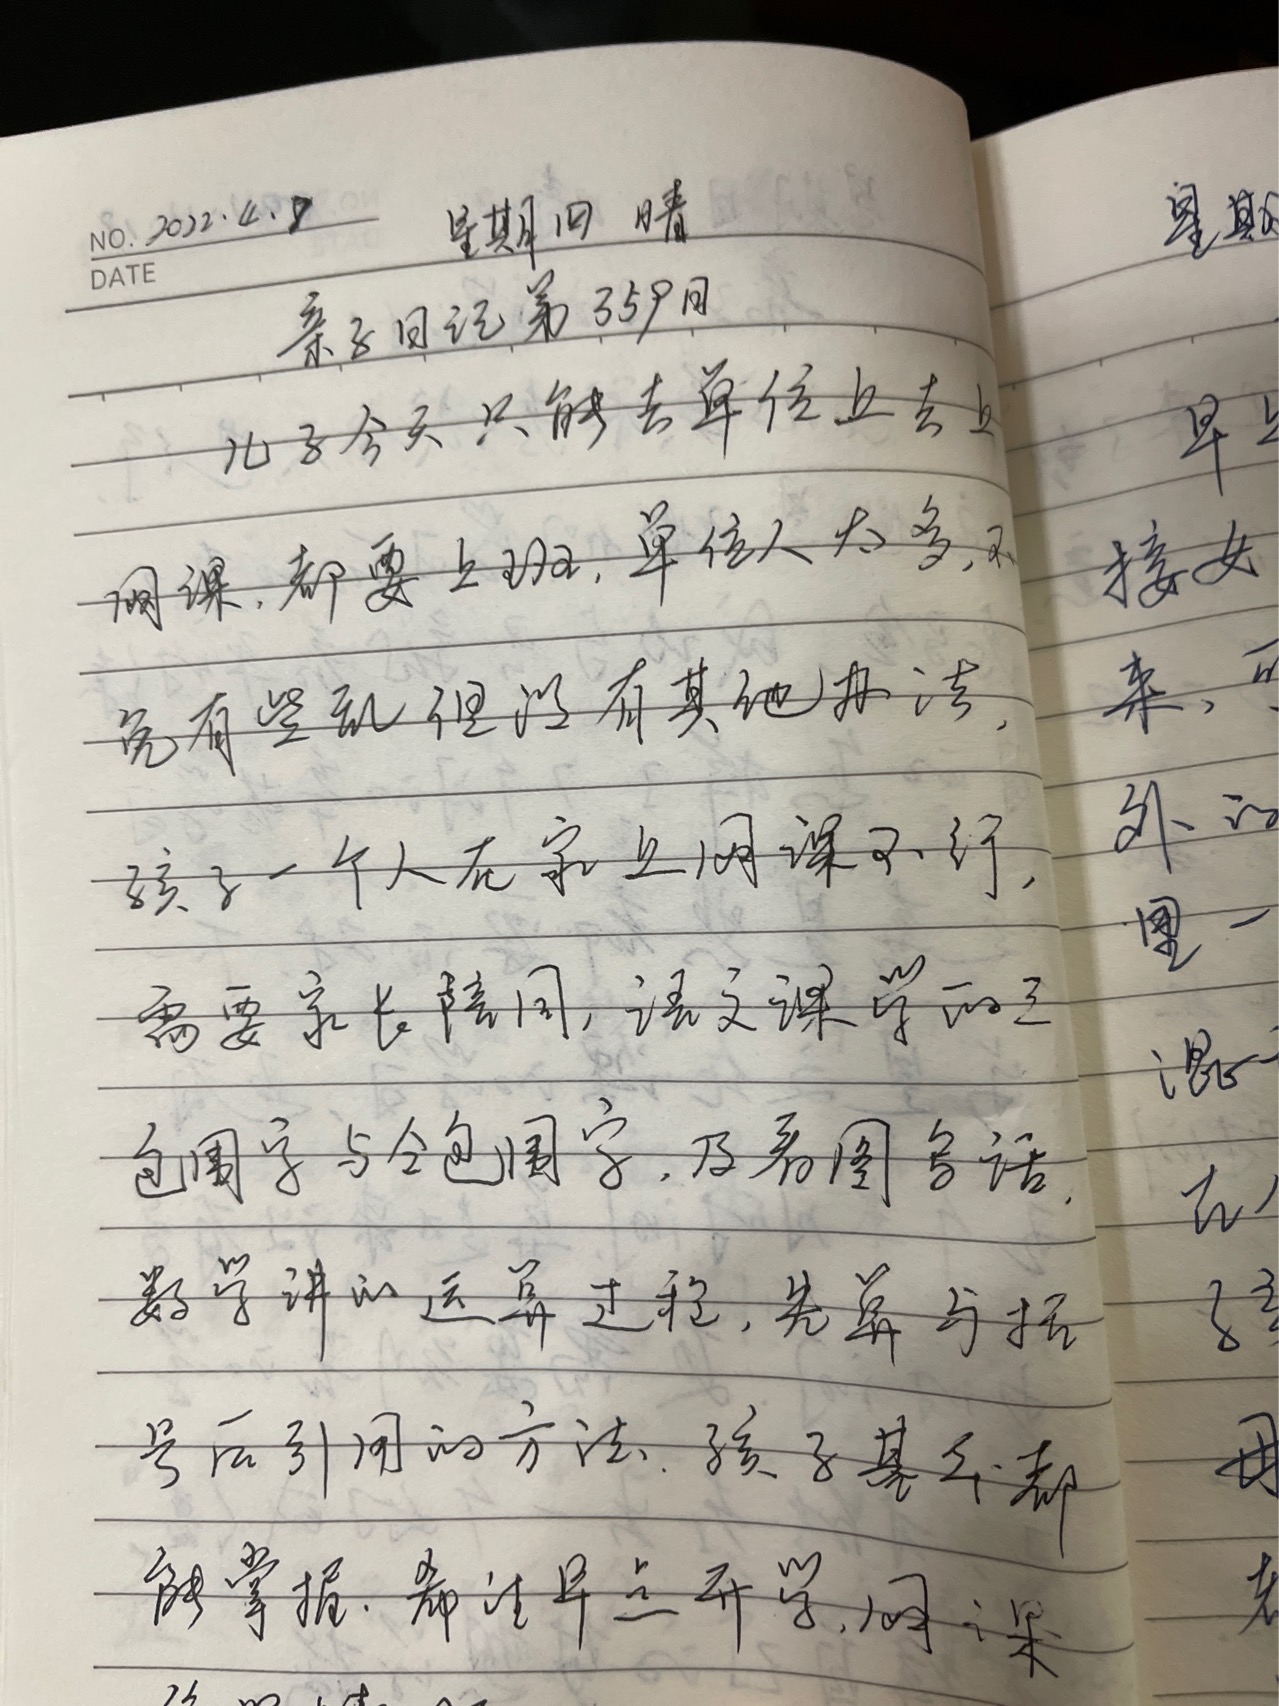 NO. 2022.4.7 星期四 晴
DATE
亲子日记第359日
儿子今天只能去单位上去上
网课.都要上班,单位人太多,不
免有些乱但没有其他办法,
孩子一个人在家上网课不行,
需要家长陪同,语文课学的三
包围字与全包围字,及看图写话,
数学讲的运算过程,先算与括
号后引用的方法.孩子基本都
能掌握.希望早点开学,网课
星期
早上
接女
来,可
外的
里一
混一
在
孩
用